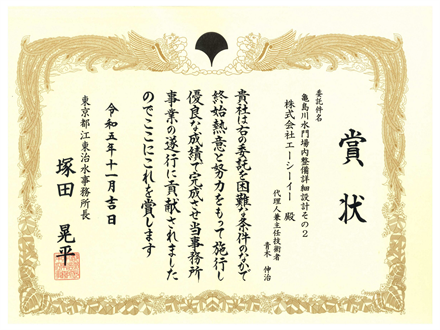 賞状
委託件名
亀島川水門場内整備詳細設計その2
株式会社エーシーイー 殿
代理人兼主任技術者
青木 伸治
貴社は右の委託を困難な条件のなかで
終始熱意と努力をもって施行し
優良な成績で完成させ当事務所
事業の遂行に貢献されました
のでここにこれを賞します
令和五年十一月吉日
東京都江東治水事務所長
塚田 晃平